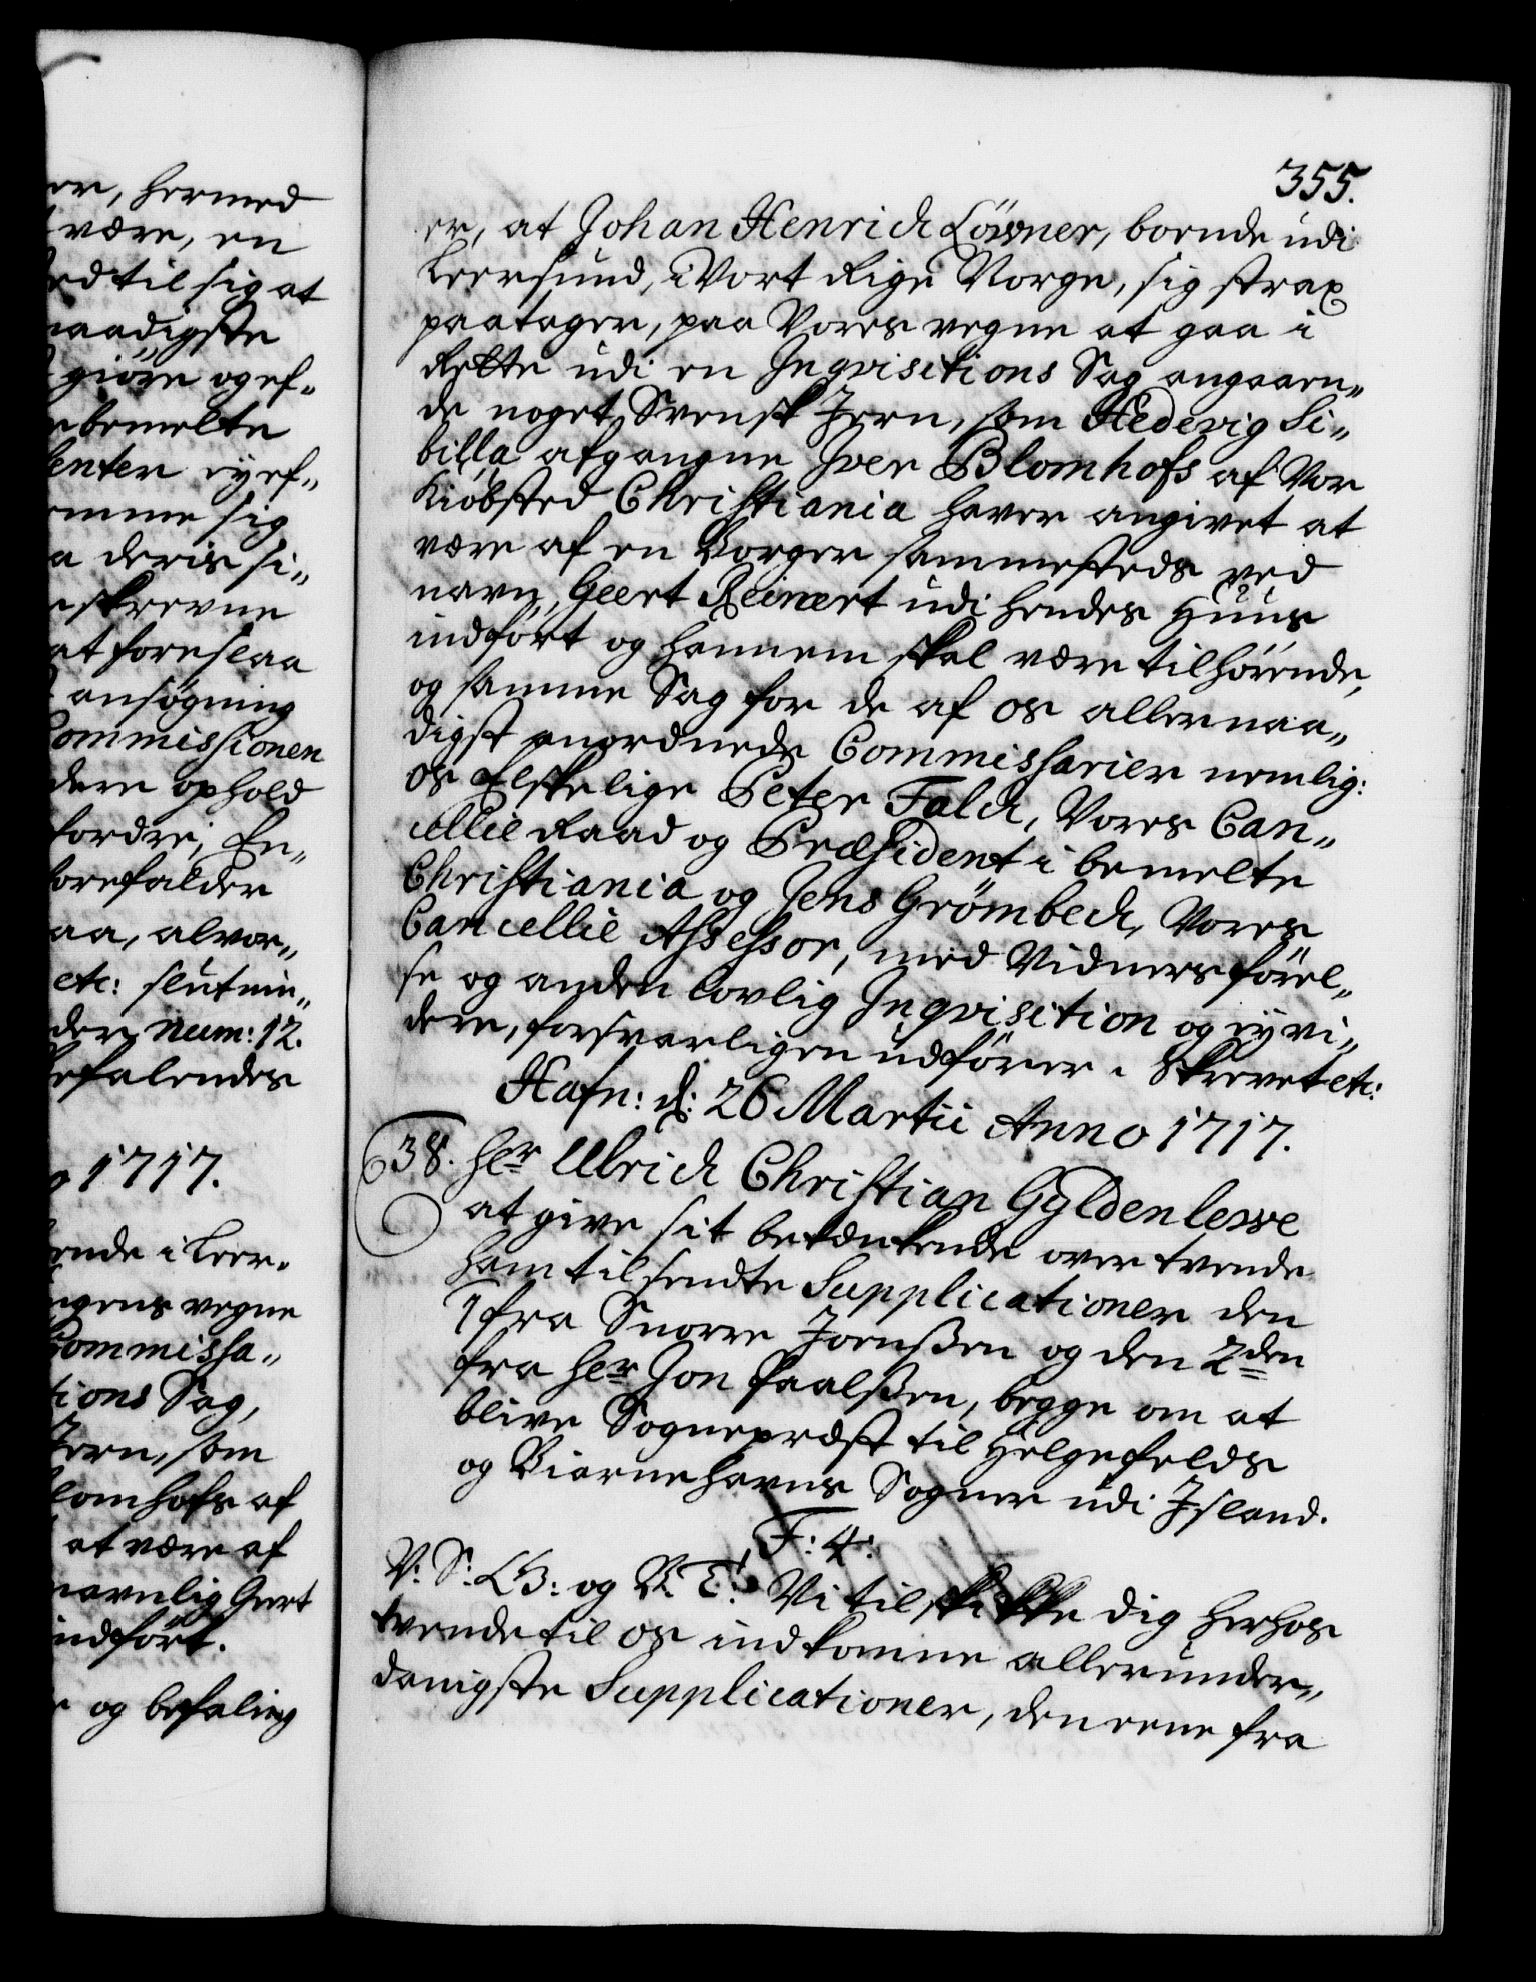 er, hermed
være, en
ed til sig at
naadigste
giöre og ef„
bemelte
enter ey ef„
omme sig
a deris si„
skrevne
at foreslaa
ansøgning
Commissionen
dere ophold
fordre, En„
forefalder
aa, alvor„
etc: slutnin„
der Num: 12.
befalendes
1717.
ende i Leer„
ngens vegne
Commissa„
tions Sag,
Jern, som
lomhofs af
at være af
navnlig Geert
indfört.
og befaling
355.
er, at Johan Henrich Löwner, boende udi
Leersund, i Vort Rige Norge, sig strax
paatager, paa Vores vegne at gaa i
Rette udi en Inqvisitions Sag angaaen„
de noget Svensk Jern, som Hedevig Si„
billa afgangne Iver Blomhofs af Vor
Kiöbsted Christiania haver angivet at
være af en Borger sammesteds ved
navn, Geert Reinert udi hendes Huus
indfört og hannem skal være tilhörende,
og samme Sag for de af os allernaa„
digst anordnede Commissarier nemlig:
os Elskelige Peter Falch, Vores Can„
cellie Raad og Præsident i bemelte
Christiania og Jens Grömbech, Vores
Cancellie Assessor, med Vidnersförel„
se og anden lovlig Inqvisition og eyvi„
dere, forsvarligen udförer. Skrevet etc:
Hafn: d: 26 Martii Anno 1717.
38. Hr Ulrich Christian Gyldenlewe
at give sit betænkende over tvende
ham tilsendte Supplicationer den
1 fra Snorre Joenßen og den 2den
fra Hr Jon Paalßen, begge om at
blive Sognepræst til Helgefelds
og Biarnehavns Sogner udi Island.
F: 4.
V: S: G: og B: T: Vi tilskikke dig herhos
tvende til os indkomne allerunder„
danigste Supplicationer, den eene fra